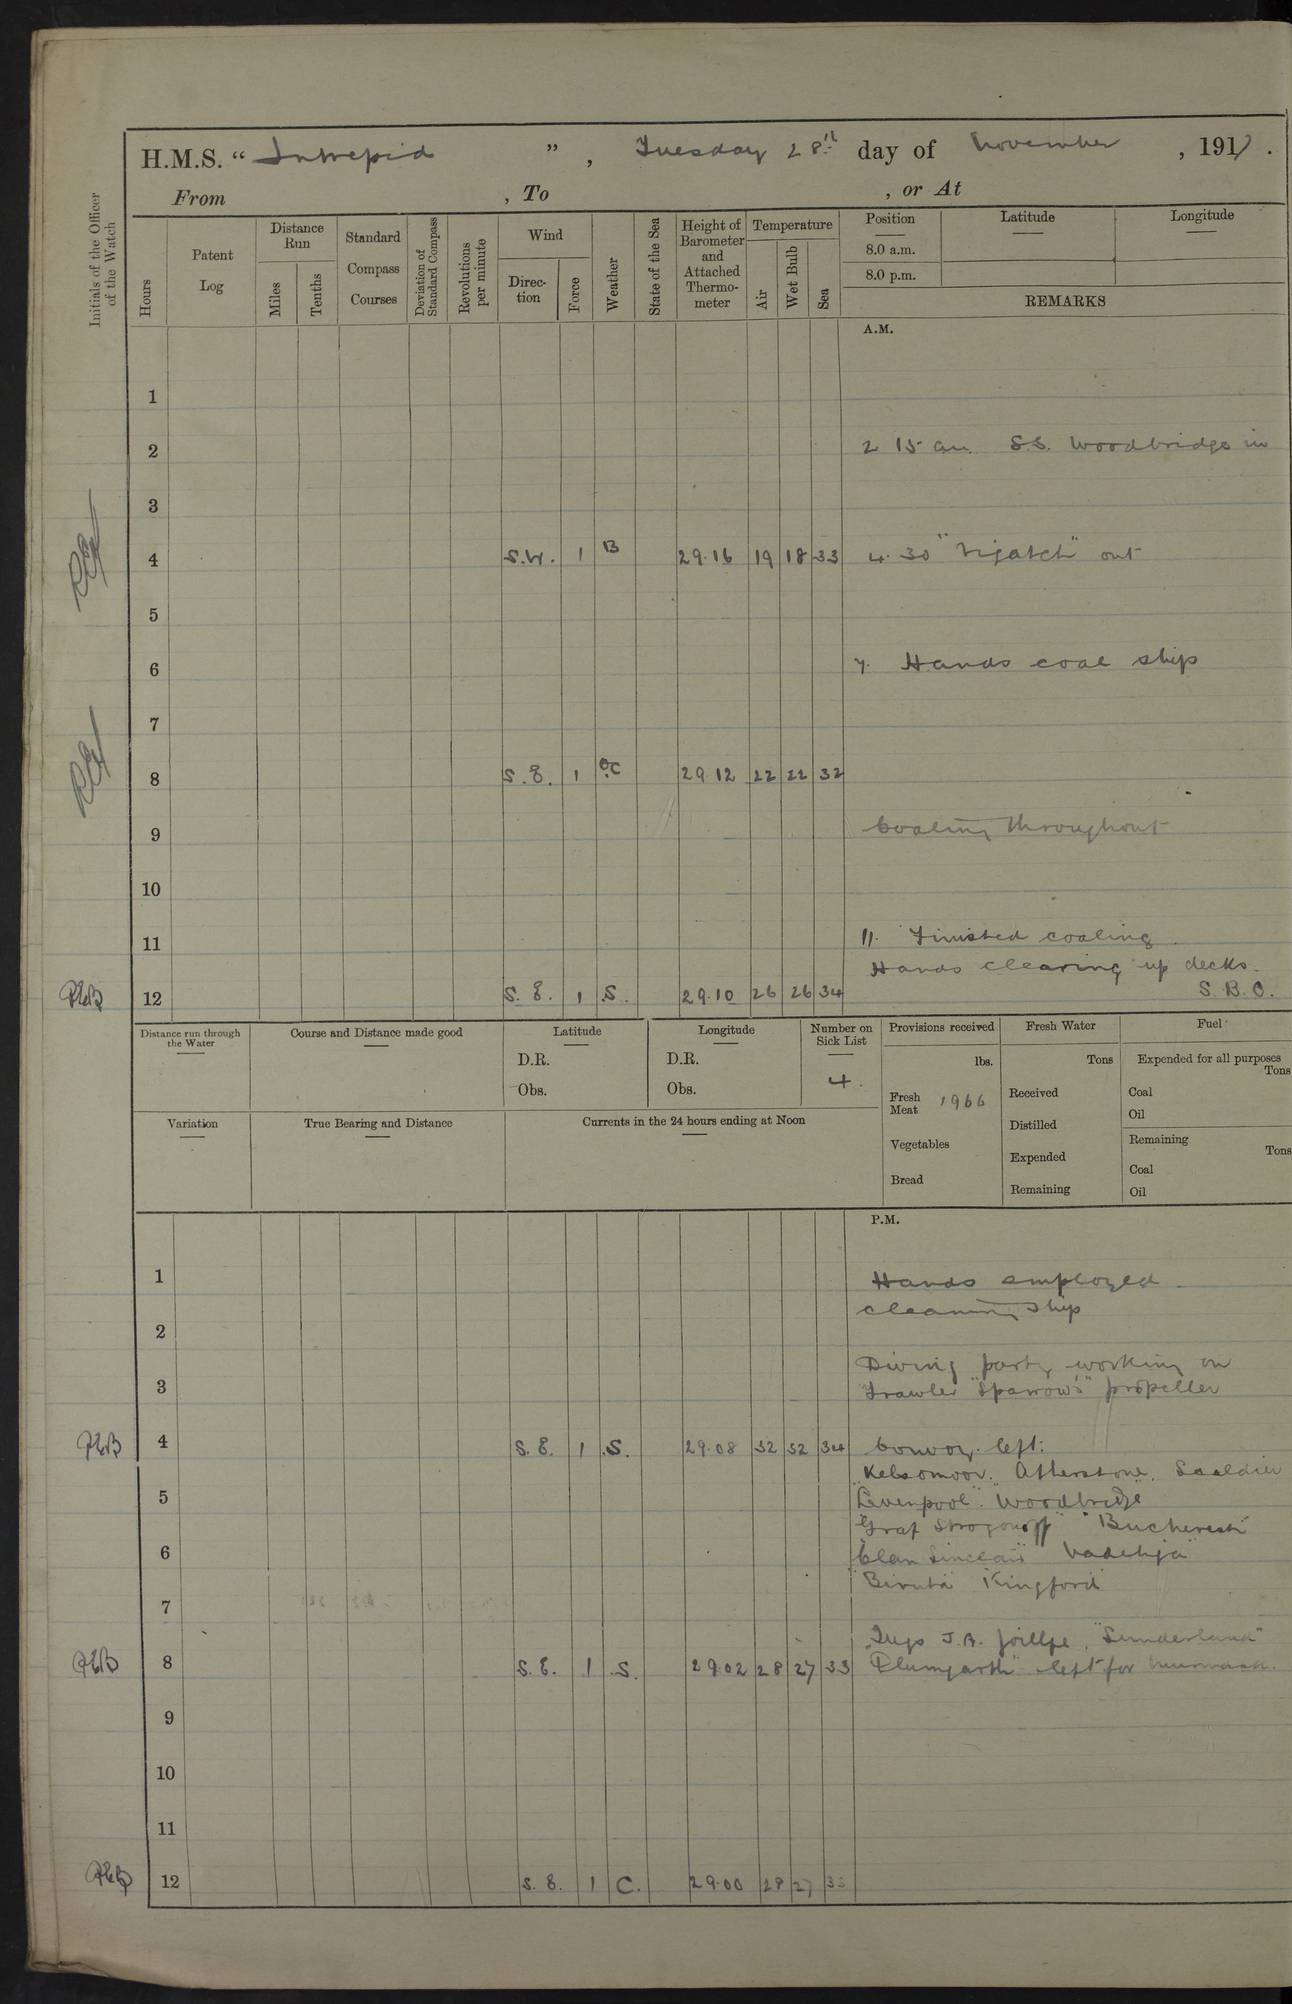 H.M.S. “ Intrepid ” , Tuesday 28th day of November , 191 .
From , To , or At
Initials of the Officer of the Watch
Hours
Patent Log
Distance Run
Miles
Tenths
Standard Compass Courses
Deviation of Standard Compass
Revolutions per minute
Wind
Direction
Force
Weather
State of the Sea
Height of Barometer and Attached Thermometer
Temperature
Air
Wet Bulb
Sea
Position
8.0 a.m.
8.0 p.m.
Latitude
Longitude
REMARKS
A.M.
1
2 2 15 am S.S. Woodbridge in
3
4 S.W. 1 B 29.16 19 18 33 4.30 out
5
6 7. Hands coal ship
7
8 S.E. 1 OC 29.12 22 22 32
9 Coaling throughout
10
11 11. Finished coaling.
Hands clearing up decks.
12 S.E. 1 S. 29.10 26 26 34 S.B.O.
Distance run through the Water
Course and Distance made good
Latitude
D.R.
Obs.
Longitude
D.R.
Obs.
Number on Sick List
4.
Provisions received
lbs.
Fresh Meat 1966
Vegetables
Bread
Fresh Water
Tons
Received
Distilled
Expended
Remaining
Fuel
Expended for all purposes
Tons
Coal
Oil
Remaining
Tons
Coal
Oil
Variation
True Bearing and Distance
Currents in the 24 hours ending at Noon
P.M.
1 Hands employed
cleaning ship
2
Diving party working on
3 Trawler "Sparrow's" propeller
4 S.E. 1 S. 29.08 32 32 34 Convoy left:
Kelsomoor. Atherstone.
5 "Levenpool". "Woodbridge"
"Graf Strogonoff" "Bucharest"
6 "Clan Sinclair"
"Biruta" Kingford
7
Tugs J.A. "Sunderland"
8 S.E. 1 S. 29.02 28 27 33 "Plumgarth" left for
9
10
11
12 S.E. 1 C. 29.00 28 27 33